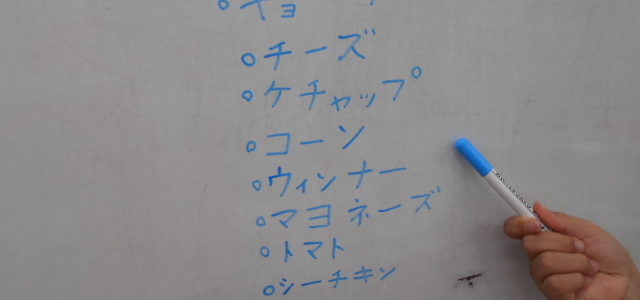 ○チーズ
○ケチャップ
○コーン
○ウィンナー
○マヨネーズ
○トマト
○シーチキン